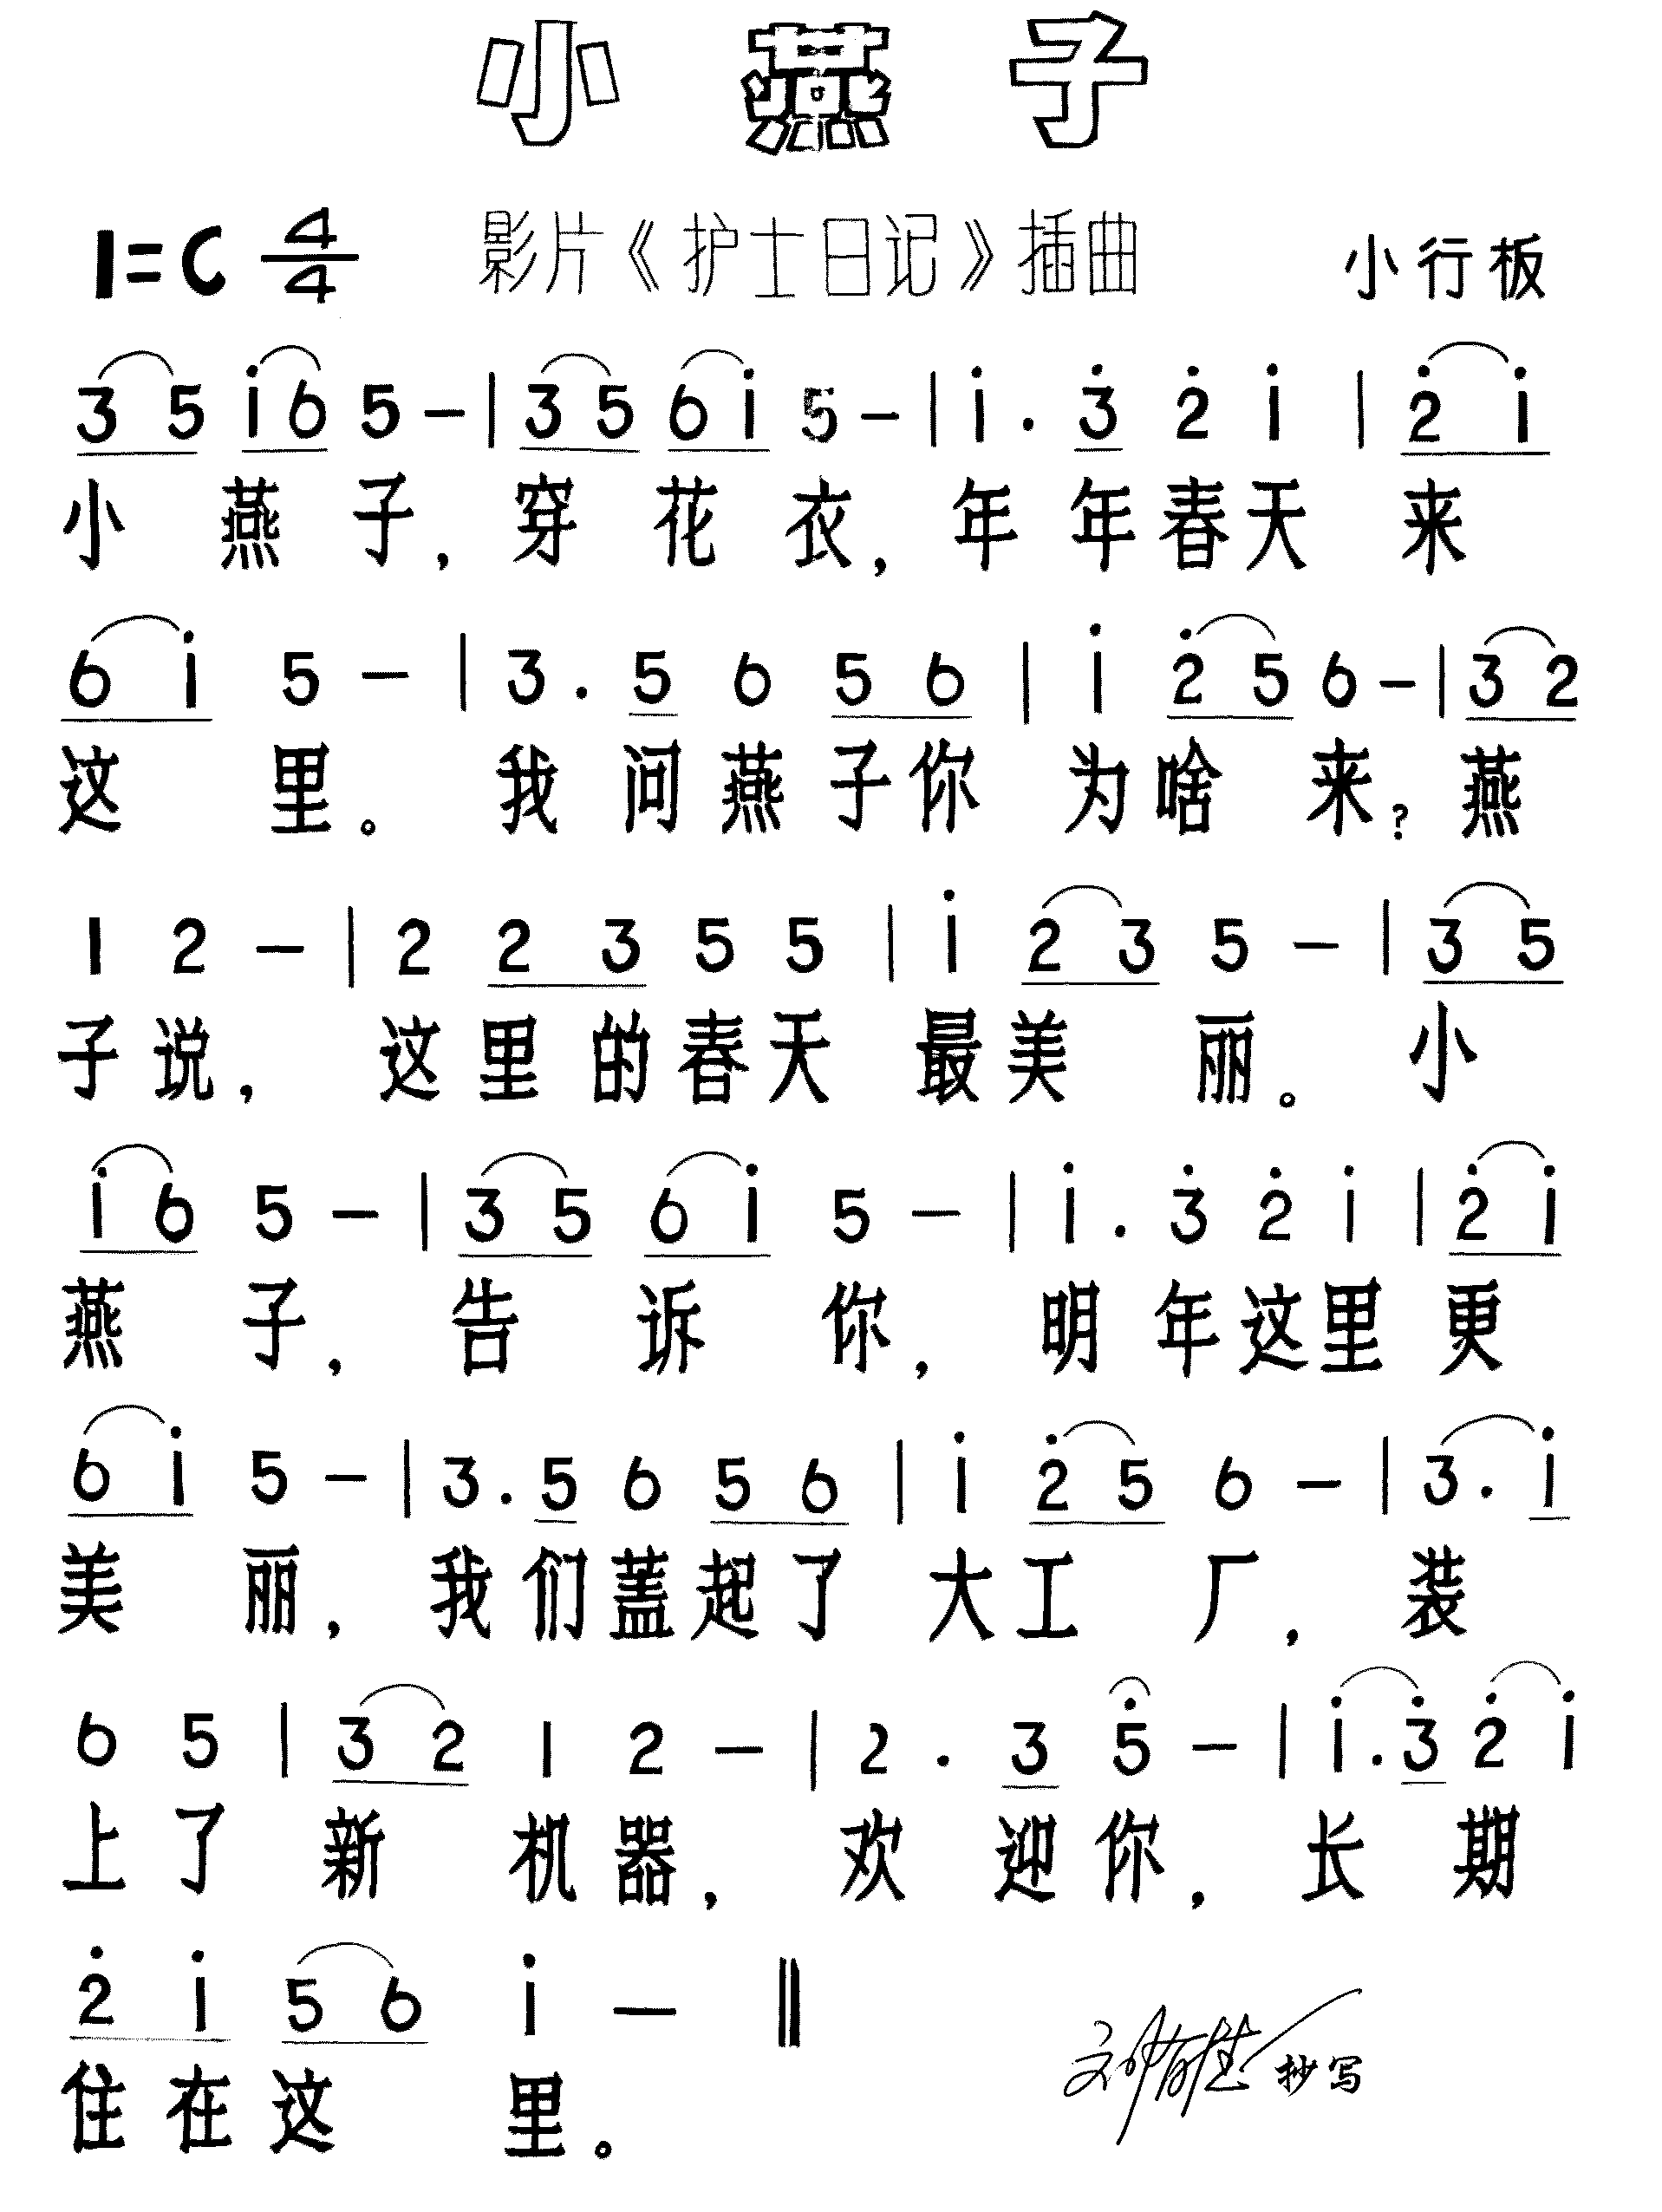 小燕子
1=C 4/4 影片《护士日记》插曲 小行板
3 5 i 6 5 – | 3 5 6 i 5 – | i · 3̇ 2̇ i | 2̇ i
小燕子，穿花衣，年年春天来
6 i 5 – | 3 · 5 6 5 6 | i 2̇ 5 6 – | 3 2
这里。我问燕子你为啥来？燕
1 2 – | 2 2 3 5 5 | i 2 3 5 – | 3 5
子说，这里的春天最美丽。小
i 6 5 – | 3 5 6 i 5 – | i · 3̇ 2̇ i | 2̇ i
燕子，告诉你，明年这里更
6 i 5 – | 3 · 5 6 5 6 | i 2̇ 5 6 – | 3 · i
美丽，我们盖起了大工厂，装
6 5 | 3 2 1 2 – | 2 · 3 5̇ – | i · 3̇ 2̇ i
上了新机器，欢迎你，长期
2̇ i 5 6 i – ‖
住在这里。
抄写